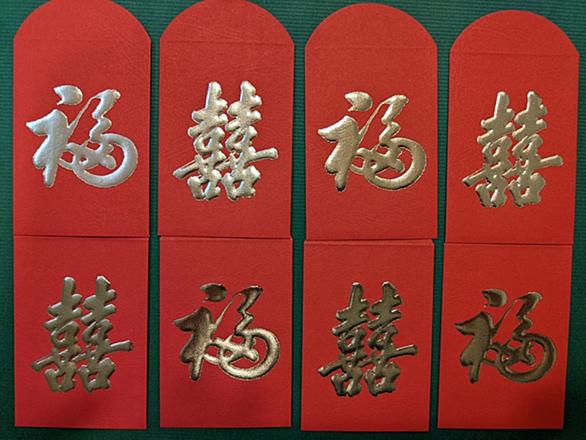 福 囍 福 囍
囍 福 囍 福